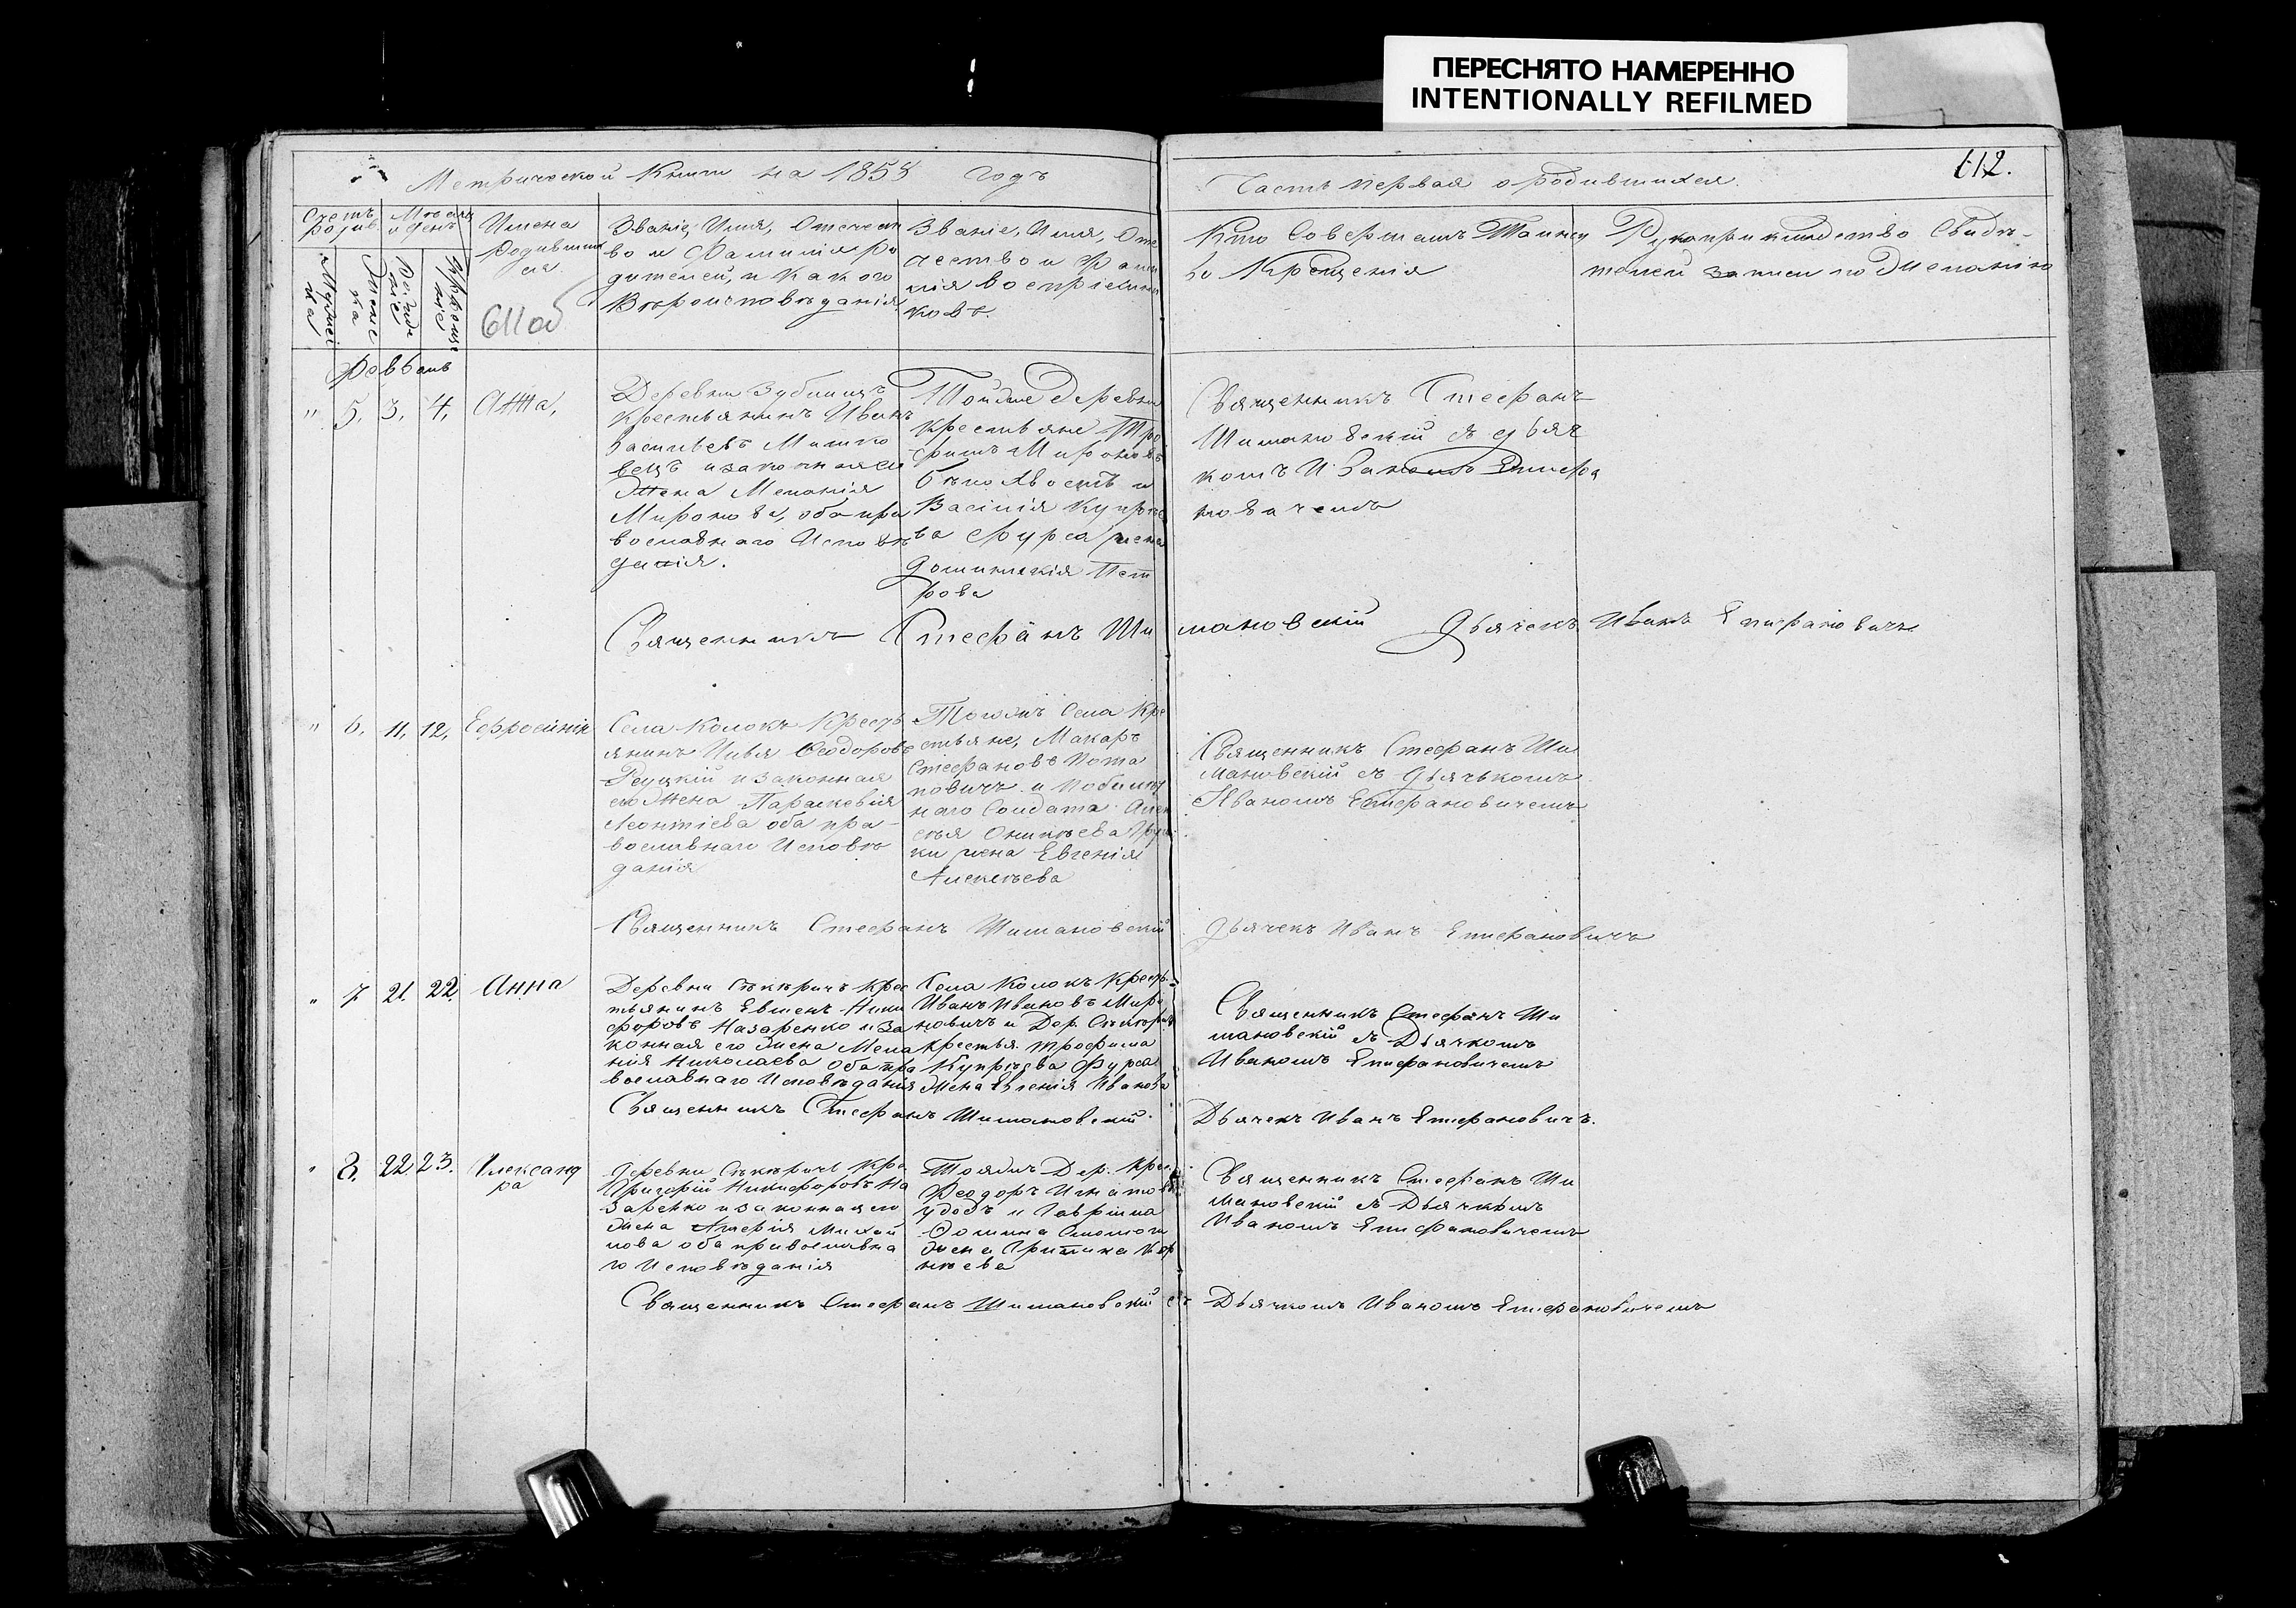 ПЕРЕСНЯТО НАМЕРЕННО
INTENTIONALLY REFILMED
Метрической Книги на 1858 годъ
Часть первая о родившихся.
612.
Счетъ родив
Мѣсяцъ и день
Мужеска
Женска
Рожденіе
Крещеніе
Имена
родивших
ся.
611об
Званіе, Имя, Отечест
во и Фамилія ро
дителей, и какого
Вѣроисповѣданія
Званіе, Имя, Оте
чество и Фами
лія воспріемни
ковъ.
Кто Совершалъ Таинст
во Крещенія
Рукоприкладство Свидѣ-
телей записи по Желанію
" 5. 3. 4. Анна,
Деревни Зубилищъ
крестьянинъ Иванъ
Васильевъ
и законная его
Жена Меланія
Миронова, оба пра
вославнаго Исповѣ
данія.
Тойже деревни
крестьяне Тро
фимъ Мироновъ
Бѣлохвостъ и
Василія Купріе
ва Фурса жена
Домникія Пет
рова
Священникъ Стефанъ
Шимановскій съ дьяч
комъ Иваномъ Епифа
новичемъ
Священникъ Стефанъ Шимановскій Дьячекъ Иванъ Епифановичъ
" 6. 11. 12. Ефросинія
Села Колокъ Кресть
янинъ Илья Феодоровъ
Рецкій и законная
его Жена Параскевія
Леонтіева оба пра-
вославнаго Исповѣ
данія
Тогожъ Села Кре
стьяне, Макаръ
Стефановъ Пота
повичъ и
наго Солдата Алек
сѣя
жена Евгенія
Алексѣева
Священникъ Стефанъ Ши
мановскій съ Дьячькомъ
Иваномъ Епифановичемъ
Священникъ Стефанъ Шимановскій Дьячекъ Иванъ Епифановичъ
" 7 21. 22. Анна
Деревни Сѣкѣричъ Крес
тьянинъ Евменъ Ники
форовъ Назаренко и за
конная его Жена Мела
нія Николаева Оба пра
вославнаго Исповѣданія
Села Колокъ Крест.
Иванъ Ивановъ Миро
новичъ и Дер. Сѣкѣричъ
крестья. Трофима
Купріева Фурса
Жена Евгенія Иванова
Священникъ Стефанъ Ши
мановскій съ Дьячкомъ
Иваномъ Епифановичемъ
Священникъ Стефанъ Шимановскій. Дьячекъ Иванъ Епифановичъ.
" 8. 22. 23. Александ
ра
Деревни Сѣкѣричъ Кре.
Григорій Никифоровъ На
заренко и законная его
Жена Михай
лова оба православна
го Исповѣданія
Тояжъ Дер. Крес.
Феодоръ Игнатовъ
Удодъ и Гавріила
Жена Кор
нѣева
Священникъ Стефанъ Ши
мановскій съ Дьячкомъ
Иваномъ Епифановичемъ
Священникъ Стефанъ Шимановскій съ Дьячкомъ Иваномъ Епифановичемъ